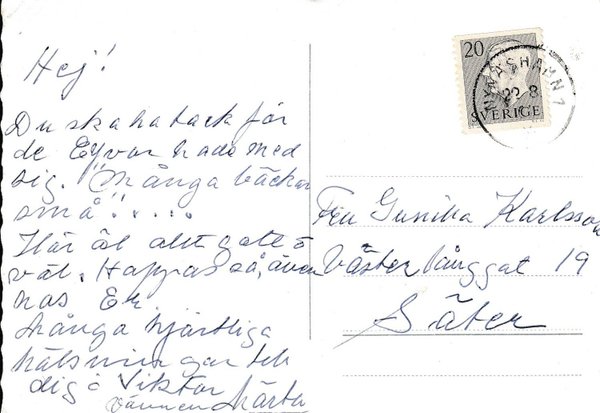 Hej!
Du ska ha tack för
de Eyvor hade med
sig. "Många bäckar
små"!....
Här äl allt gott o
väl. Hoppas så, även
hos Er.
Många hjärtliga
hälsningar till
dig o Viktor
vännen Märta
20
NYNÄSHAMN 1
22 8
SVERIGE
Fru Gunilla Karlsson
Västerlånggat 19
Säter